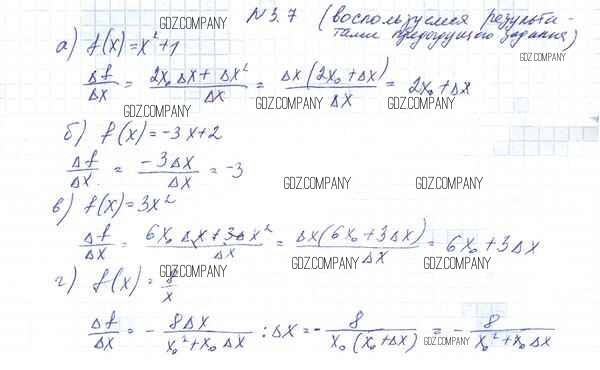 GDZ.COMPANY
№ 3.7 (воспользуемся результа-
тами предыдущего задания)
а) f(x)=x²+1
GDZ.COMPANY
Δf/Δx = (2x₀Δx+Δx²)/Δx = Δx(2x₀+Δx)/Δx = 2x₀+Δx
GDZ.COMPANY GDZ.COMPANY GDZ.COMPANY
б) f(x)=-3x+2
Δf/Δx = -3Δx/Δx = -3
GDZ.COMPANY GDZ.COMPANY
в) f(x)=3x²
GDZ.COMPANY
Δf/Δx = (6x₀Δx+3Δx²)/Δx = Δx(6x₀+3Δx)/Δx = 6x₀+3Δx
GDZ.COMPANY GDZ.COMPANY GDZ.COMPANY
г) f(x)=8/x
Δf/Δx = - 8Δx/(x₀²+x₀Δx) : Δx = - 8/(x₀(x₀+Δx)) = - 8/(x₀²+x₀Δx)
GDZ.COMPANY